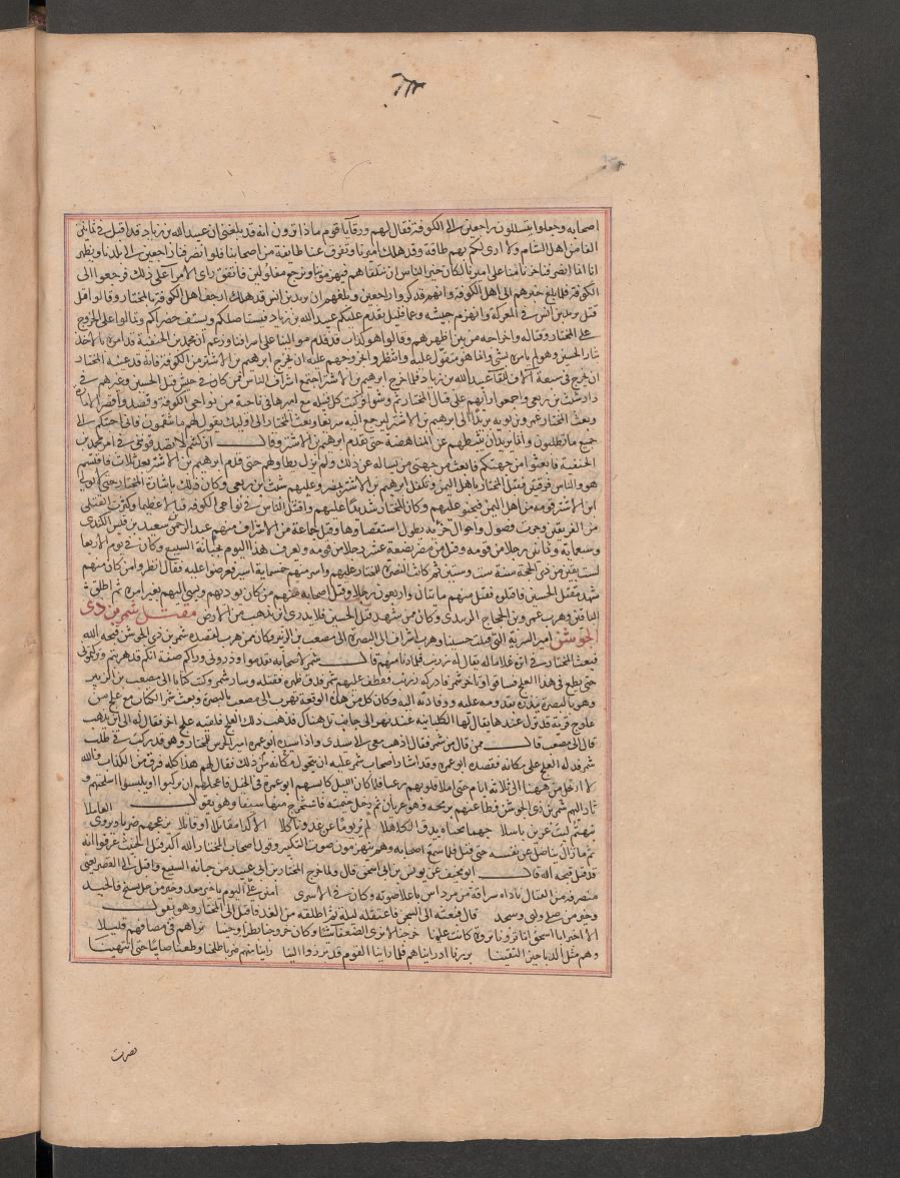 اصحابه وجعلوا يتسللون راجعين الى الكوفة فقال لهم ورقا يا قوم ماذا ترون انه قد بلغني ان عبيد الله بن زياد قد اقبل في ثمانين
الفا من اهل الشام ولا ارى لكم بهم طاقة وقد هلك اميرنا وتفرق عنا طايفة من اصحابنا فلو انصرفنا راجعين الى بلادنا ونظهر
انا انما انصرفنا حزنا منا على اميرنا لكان خيرا لنا من ان نلقاهم فيهزمونا ونرجع مغلولين فاتفق راى الامرا على ذلك فرجعوا الى
الكوفة فلما بلغ خبرهم الى اهل الكوفة وانهم قد كروا راجعين وبلغهم ان يزيد بن انس قد هلك ارجف اهل الكوفة بالمختار وقالوا قتل
قتل يزيد بن انس في المعركة وانهزم جيشه وعما قليل يقدم عليكم عبيد الله بن زياد فيستاصلكم ويشتف خضراكم وتمالوا على الخروج
على المختار وقتاله واخراجه من بين اظهرهم وقالوا هو كذاب قد قدم موالينا على اشرافنا وزعم ان محمد بن الحنفية قد امره بالاخذ
بثار الحسين وهو لم يامره بشي وانما هو متقول عليه وانتظروا بخروجهم عليه ان يخرج ابرهيم بن الاشتر من الكوفة فانه قد عينه المختار
ان يخرج في سبعة الاف للقا عبيد الله بن زياد فلما خرج ابرهيم بن الاشتر اجتمع اشراف الناس ممن كان في جيش قتل الحسين وغيرهم في
دار شبث بن ربعي واجمعوا رايهم على قتال المختار ثم وثبوا فركبت كل قبيلة مع اميرها في ناحية من نواحي الكوفة وقصدوا قصر الامارة
وبعث المختار عمرو بن توبة بريدا الى ابرهيم بن الاشتر ليرجع اليه سريعا وبعث المختار الى اوليك يقول لهم ما تنقمون فاني اجيبكم الى
جميع ما تطلبون وانما يريد ان يثبطهم عن المناهضة حتى يقدم ابرهيم بن الاشتر وقال ان كنتم لا تصدقوني في امر محمد بن
الحنفية فابعثوا من جهتكم وابعث من جهتي من يساله عن ذلك ولم يزل يطاولهم حتى قدم ابرهيم بن الاشتر بعد ثلاث فانقسم
هو والناس فرقتين فتكفل المختار باهل اليمن وتكفل ابرهيم بن الاشتر بمضر وعليهم شبث بن ربعي وكان ذلك باشارة المختار حتى لا يولي
ابن الاشتر قومه من اهل اليمن فيحنو عليهم وكان المختار شديدا عليهم واقتتل الناس في نواحي الكوفة قتالا عظيما وكثرت القتلى
من الفريقين وجرت فصول واحوال حربية يطول استقصاوها وقتل جماعة من الاشراف منهم عبد الرحمن بن سعيد بن قيس الكندى
وسبعماية وثمانين رجلا من قومه وقتل من مضر بضعة عشر رجلا من قومه ويعرف هذا اليوم بجبانة السبيع وكان في يوم الاربعا
لست بقين من ذى الحجة سنة ست وستين ثم كانت النصرة للمختار عليهم واسر منهم خمسماية اسير فعرضوا عليه فقال انظروا من كان منهم
شهد مقتل الحسين فاقتلوه فقتل منهم مايتان واربعون رجلا وقتل اصحابه منهم من كان يوذيهم ويسي اليهم بغير امره ثم اطلق
الباقين وهرب عمرو بن الحجاج الزبيدى وكان ممن شهد قتل الحسين فلا يدرى اين ذهب من الارض مقتل شمر بن ذى
الجوشن امير السرية التي قتلت حسينا وهرب اشراف الى البصرة الى مصعب بن الزبير وكان ممن هرب لقصده شمر بن ذى الجوشن قبحه الله
فبعث المختار في اثره غلاما له يقال له زرنب فلما دنا منهم قال شمر لاصحابه تقدموا وذروني وراكم صفة انكم قد هربتم وتركتموني
حتى يطمع في هذا العلج فساقوا وتاخر شمر فادركه زرنب فعطف عليه شمر فدق ظهره فقتله وسار شمر وكتب كتابا الى مصعب بن الزبير
وهو بالبصرة ينذره بقدومه عليه ووفادته اليه وكان كل من هذه الوقعة يهرب الى مصعب بالبصرة وبعث شمر الكتاب مع علج من
علوج قرية قد نزل عندها يقال لها الكلبانية عند نهر الى جانب تل هناك فذهب ذلك العلج فلقيه علج اخر فقال له الى اين تذهب
قال الى مصعب قال ممن قال من شمر فقال اذهب معي الى سيدى واذا سيده ابو عمرة امير حرس المختار وهو قد ركب في طلب
شمر فدله العلج على مكانه فقصده ابو عمرة وقد اشار اصحاب شمر عليه ان يتحول مكانه من ذلك فقال لهم هذا كله فرق من الكذاب والله
لا ارتحل من ههنا الى ثلاثة ايام حتى املا قلوبهم رعبا فلما كان الليل كابسهم ابو عمرة في الخيل فاعجلهم ان يركبوا او يلبسوا اسلحتهم و
ثار اليهم شمر بن ذى الجوشن فطاعنهم برمحه وهو عريان ثم دخل خيمته فاستخرج منها سيفا وهو يقول
نبهتم ليث عرين باسلا جهما محياه يدق الكاهلا لم ير يوما عن عدو ناكلا الا كذا مقاتلا او قاتلا يزعجهم ضربا ويروى العاملا
ثم ما زال يناضل عن نفسه حتى قتل فلما سمع اصحابه وهم منهزمون صوت التكبير وقول اصحاب المختار الله اكبر قتل الخبيث عرفوا انه
قد قتل قبحه الله قال ابو مخنف عن يونس بن ابي اسحق قال ولما خرج المختار من جبانة السبيع واقبل الى القصر يعني
منصرفه من القتال ناداه سراقة بن مرداس باعلا صوته وكان في الاسرى امنن علي اليوم يا خير معد وخير من حل بشحر والجند
وخير من ولبى وسجد قال فبعثه الى السجن فاعتقله ليلة ثم اطلقه من الغد فاقبل الى المختار وهو يقول
الا اخبر ابا اسحق انا نزونا نزوة كانت علينا خرجنا لا نرى الضعفا شيا وكان خروجنا بطرا وحينا نراهم في مصافهم قليلا
وهم مثل الدبا حين التقينا برزنا اذ رايناهم فلما راينا القوم قد برزوا الينا راينا منهم ضربا طلحفا وطعنا صايبا حتى انثنينا
نصرت